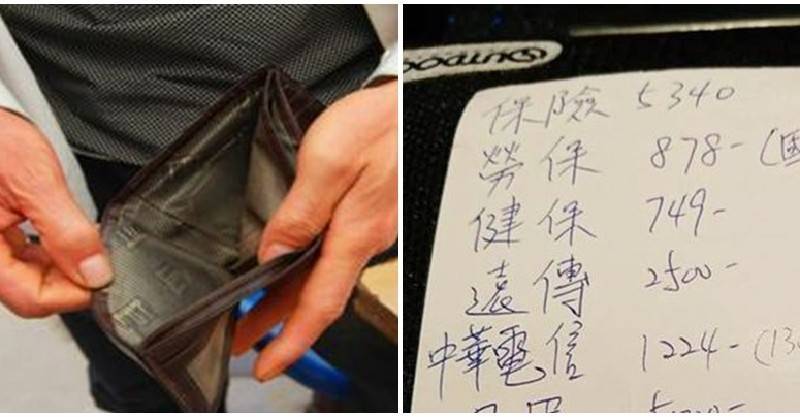 保險 5340
勞保 878-
健保 749-
遠傳 2500-
中華電信 1224- (13